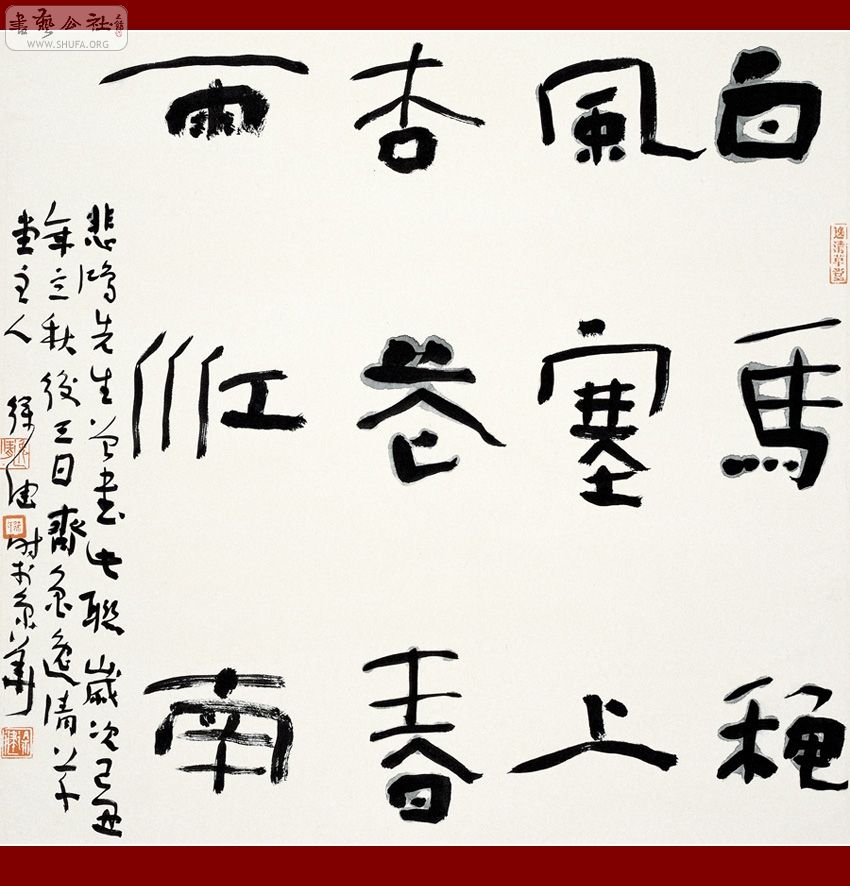 書藝公社
WWW.SHUFA.ORG
白馬穐
風塞上
杏花春
雨江南
悲鴻先生曾書此聯歲次己丑
年立秋後三日齊魯逸清草
堂主人 徐 時於京華
逸清草堂